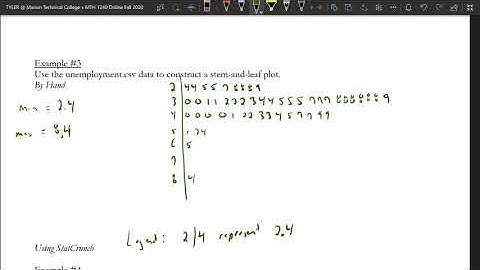 TYLER @ Marion Technical College • MTH 1240 Online Fall 2020
Example #3
Use the unemployment.csv data to construct a stem-and-leaf plot.
By Hand
min = 2.4
max = 8.4
2 | 4 4 5 5 7 8 8 8 9
3 | 0 0 1 1 2 2 2 3 4 4 5 5 5 7 7 7 8 8 8 8 8 8 9
4 | 0 0 0 0 1 2 2 3 3 4 5 7 7 9 9
5 | 1 2 4
6 | 5
7 |
8 | 4
Legend: 2/4 represent 2.4
Using StatCrunch
Example #4